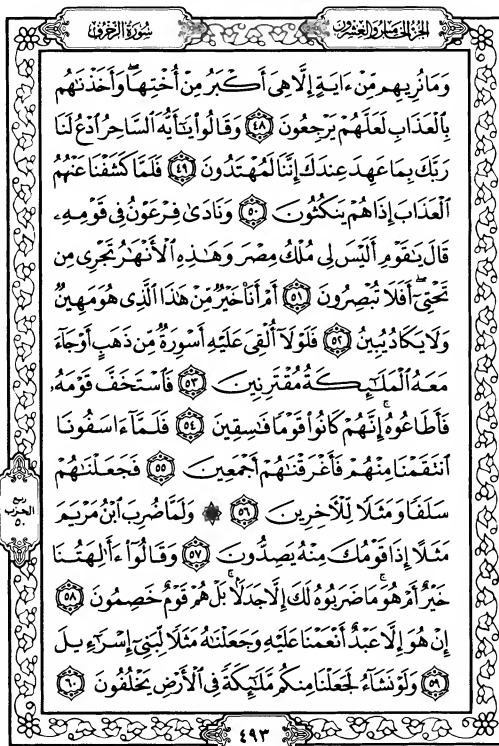 الجزء الخامس والعشرون
سورة الزخرف
وَمَا نُرِيهِم مِّنْ ءَايَةٍ إِلَّا هِىَ أَكْبَرُ مِنْ أُخْتِهَا ۖ وَأَخَذْنَٰهُم
بِالْعَذَابِ لَعَلَّهُمْ يَرْجِعُونَ ٤٨ وَقَالُوا۟ يَٰٓأَيُّهَ السَّاحِرُ ادْعُ لَنَا
رَبَّكَ بِمَا عَهِدَ عِندَكَ إِنَّنَا لَمُهْتَدُونَ ٤٩ فَلَمَّا كَشَفْنَا عَنْهُمُ
الْعَذَابَ إِذَا هُمْ يَنكُثُونَ ٥٠ وَنَادَىٰ فِرْعَوْنُ فِى قَوْمِهِۦ
قَالَ يَٰقَوْمِ أَلَيْسَ لِى مُلْكُ مِصْرَ وَهَٰذِهِ الْأَنْهَٰرُ تَجْرِى مِن
تَحْتِىٓ ۖ أَفَلَا تُبْصِرُونَ ٥١ أَمْ أَنَا۠ خَيْرٌ مِّنْ هَٰذَا الَّذِى هُوَ مَهِينٌ
وَلَا يَكَادُ يُبِينُ ٥٢ فَلَوْلَآ أُلْقِىَ عَلَيْهِ أَسْوِرَةٌ مِّن ذَهَبٍ أَوْ جَآءَ
مَعَهُ الْمَلَٰٓئِكَةُ مُقْتَرِنِينَ ٥٣ فَاسْتَخَفَّ قَوْمَهُۥ
فَأَطَاعُوهُ ۚ إِنَّهُمْ كَانُوا۟ قَوْمًا فَٰسِقِينَ ٥٤ فَلَمَّآ ءَاسَفُونَا
انتَقَمْنَا مِنْهُمْ فَأَغْرَقْنَٰهُمْ أَجْمَعِينَ ٥٥ فَجَعَلْنَٰهُمْ
سَلَفًا وَمَثَلًا لِّلْءَاخِرِينَ ٥٦ ۞ وَلَمَّا ضُرِبَ ابْنُ مَرْيَمَ
مَثَلًا إِذَا قَوْمُكَ مِنْهُ يَصِدُّونَ ٥٧ وَقَالُوٓا۟ ءَأَٰلِهَتُنَا
خَيْرٌ أَمْ هُوَ ۚ مَا ضَرَبُوهُ لَكَ إِلَّا جَدَلًۢا ۚ بَلْ هُمْ قَوْمٌ خَصِمُونَ ٥٨
إِنْ هُوَ إِلَّا عَبْدٌ أَنْعَمْنَا عَلَيْهِ وَجَعَلْنَٰهُ مَثَلًا لِّبَنِىٓ إِسْرَٰٓءِيلَ
٥٩ وَلَوْ نَشَآءُ لَجَعَلْنَا مِنكُم مَّلَٰٓئِكَةً فِى الْأَرْضِ يَخْلُفُونَ ٦٠
ربع
الحزب
٥٠
٤٩٣